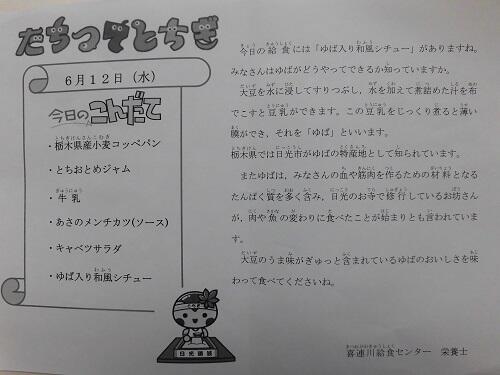 たちつてとちぎ
6月12日（水）
今日のこんだて
・栃木県産小麦コッペパン
・とちおとめジャム
・牛乳
・あさのメンチカツ(ソース)
・キャベツサラダ
・ゆば入り和風シチュー
日光
今日の給食には「ゆば入り和風シチュー」がありますね。
みなさんはゆばがどうやってできるか知っていますか。
大豆を水に浸してすりつぶし、水を加えて煮詰めた汁を布
でこすと豆乳ができます。この豆乳をじっくり煮ると薄い
膜ができ、それを「ゆば」といいます。
栃木県では日光市がゆばの特産地として知られています。
またゆばは、みなさんの血や筋肉を作るための材料となる
たんぱく質を多く含み、日光のお寺で修行しているお坊さん
が、肉や魚の変わりに食べたことが始まりとも言われていま
す。
大豆のうま味がぎゅっと含まれているゆばのおいしさを味
わって食べてくださいね。
喜連川給食センター　栄養士